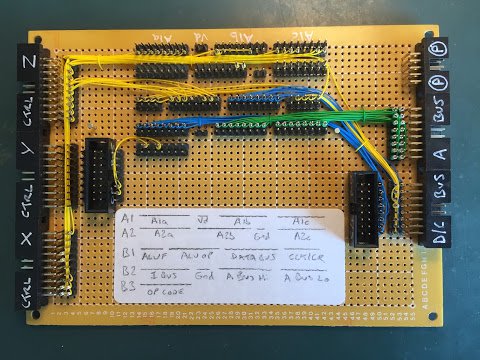 A1a Vd A1b A1c
Z
CTRL
Y
CTRL
X
CTRL
P
BUS P
A
BUS
D/C
A1 A1a Vd A1b A1c
A2 A2a A2b Gnd A2c
B1 ALUF ALUOP DATABUS CLK/CR
B2 I BUS Gnd A BUS Hi A BUS Lo
B3 OPCODE
ABCDEFGH